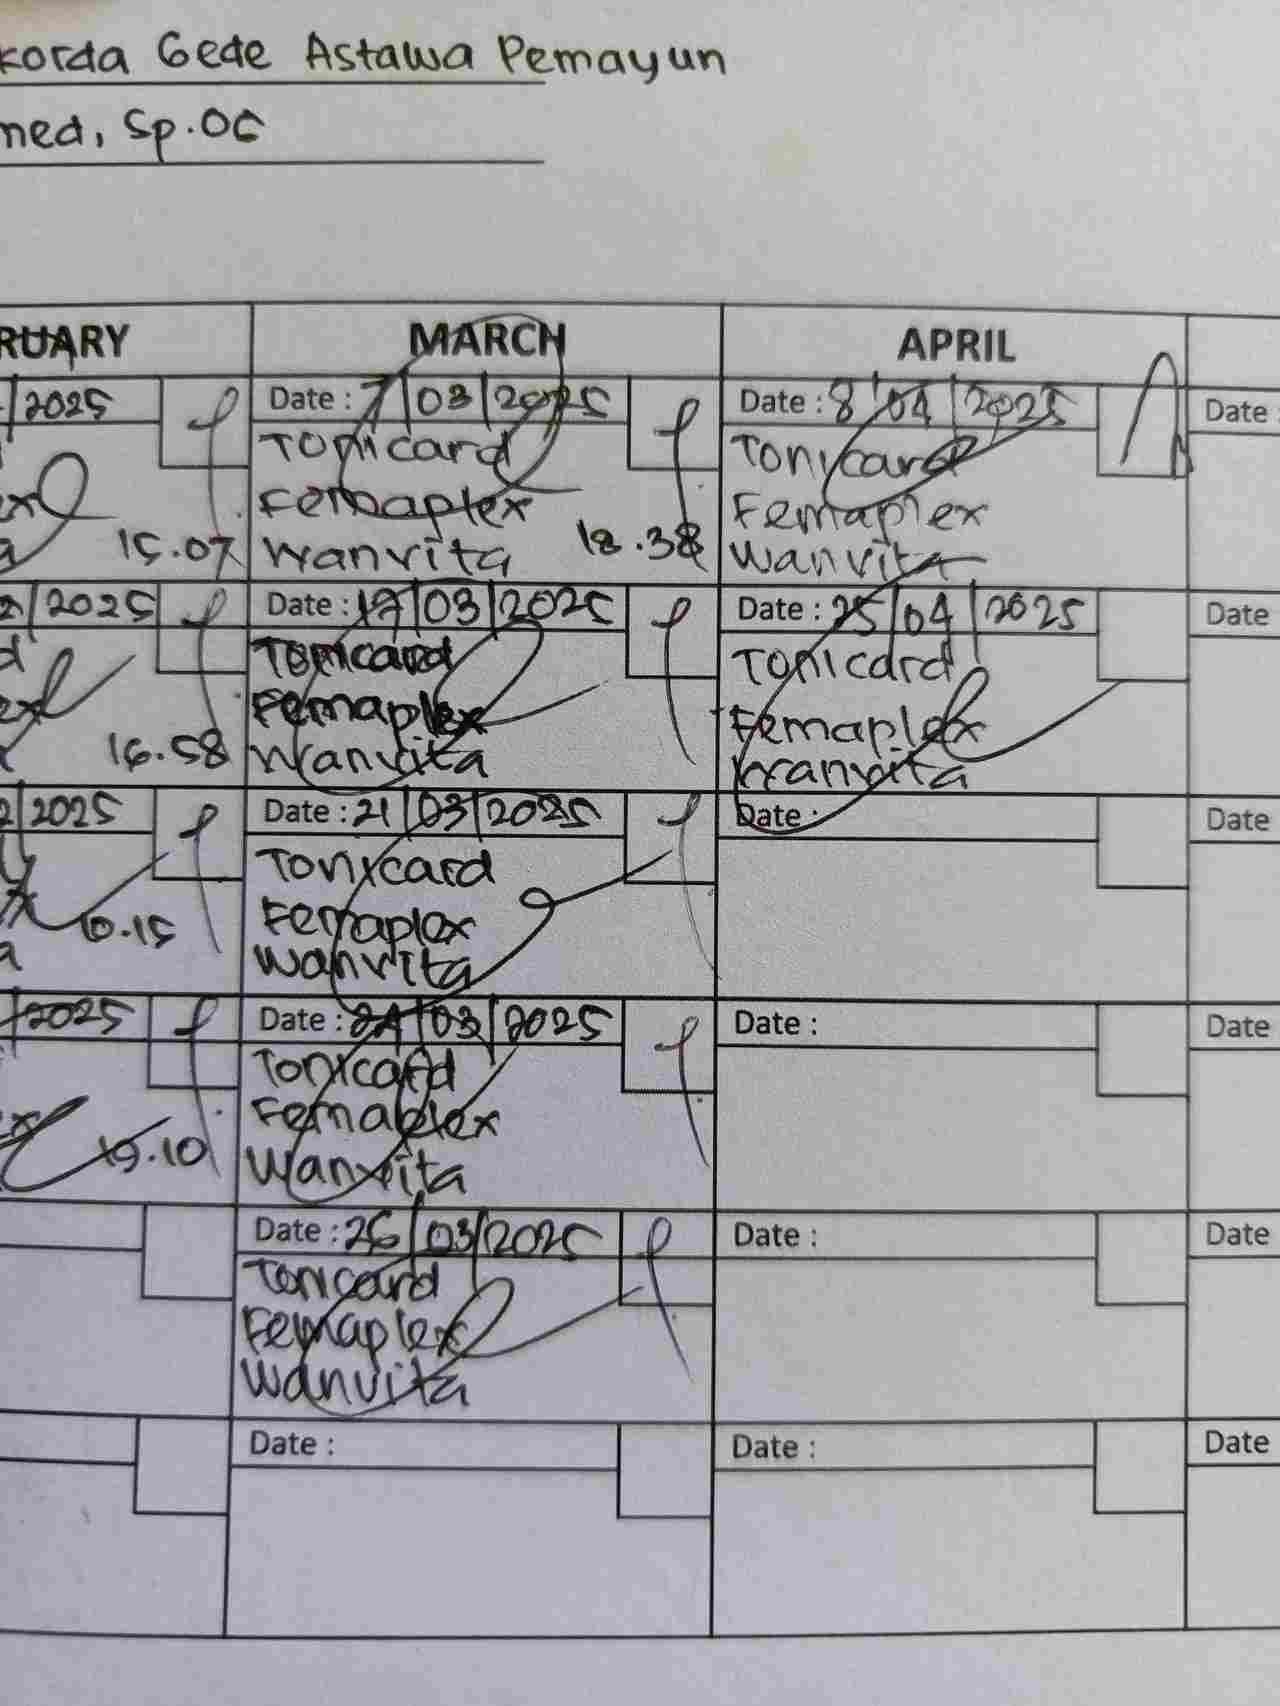 korda Gede Astawa Pemayun
med, Sp.OG
RUARY MARCH APRIL
/2025 Date : 7/03/2025 Date : 8/04/2025 Date
Tonicard Tonicard
Femaplex Femaplex
15.07 Wanvita 18.38 Wanvita
/2025 Date : 17/03/2025 Date : 25/04/2025 Date
Tonicard Tonicard
Femaplex Femaplex
16.58 Wanvita Wanvita
/2025 Date : 21/03/2025 Date : Date
Tonicard
Femaplex
10.15 Wanvita
/2025 Date : 24/03/2025 Date : Date
Tonicard
Femaplex
19.10 Wanvita
Date : 26/03/2025 Date : Date
Tonicard
Femaplex
Wanvita
Date : Date : Date